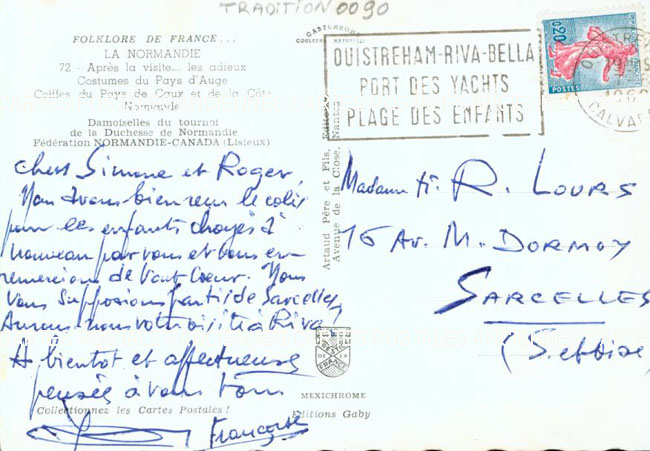 TRADITION 0090
FOLKLORE DE FRANCE...
LA NORMANDIE
72 - Après la visite... les adieux
Costumes du Pays d'Auge
Coiffes du Pays de Caux et de la Côte
Normande
Damoiselles du tournoi
de la Duchesse de Normandie
Fédération NORMANDIE-CANADA (Lisieux)
OUISTREHAM-RIVA-BELLA
PORT DES YACHTS
PLAGE DES ENFANTS
0,20
POSTES
CALVA
chers Simone et Roger,
Nous avons bien reçu le colis
pour les enfants choyés à
nouveau par vous et vous en
remercions de tout coeur. Nous
vous supposions partis de Sarcelles
Aurons-nous votre visite à Riva?
A bientot et affectueuses
pensées à vous tous
Françoise
Artaud Père et Fils, Editeurs
Avenue de la Close, Nantes
Madame R. LOURS
16 Av. M. DORMOY
SARCELLES
(S. et Oise)
FRANCE
MEXICHROME
Collectionnez les Cartes Postales !
Editions Gaby